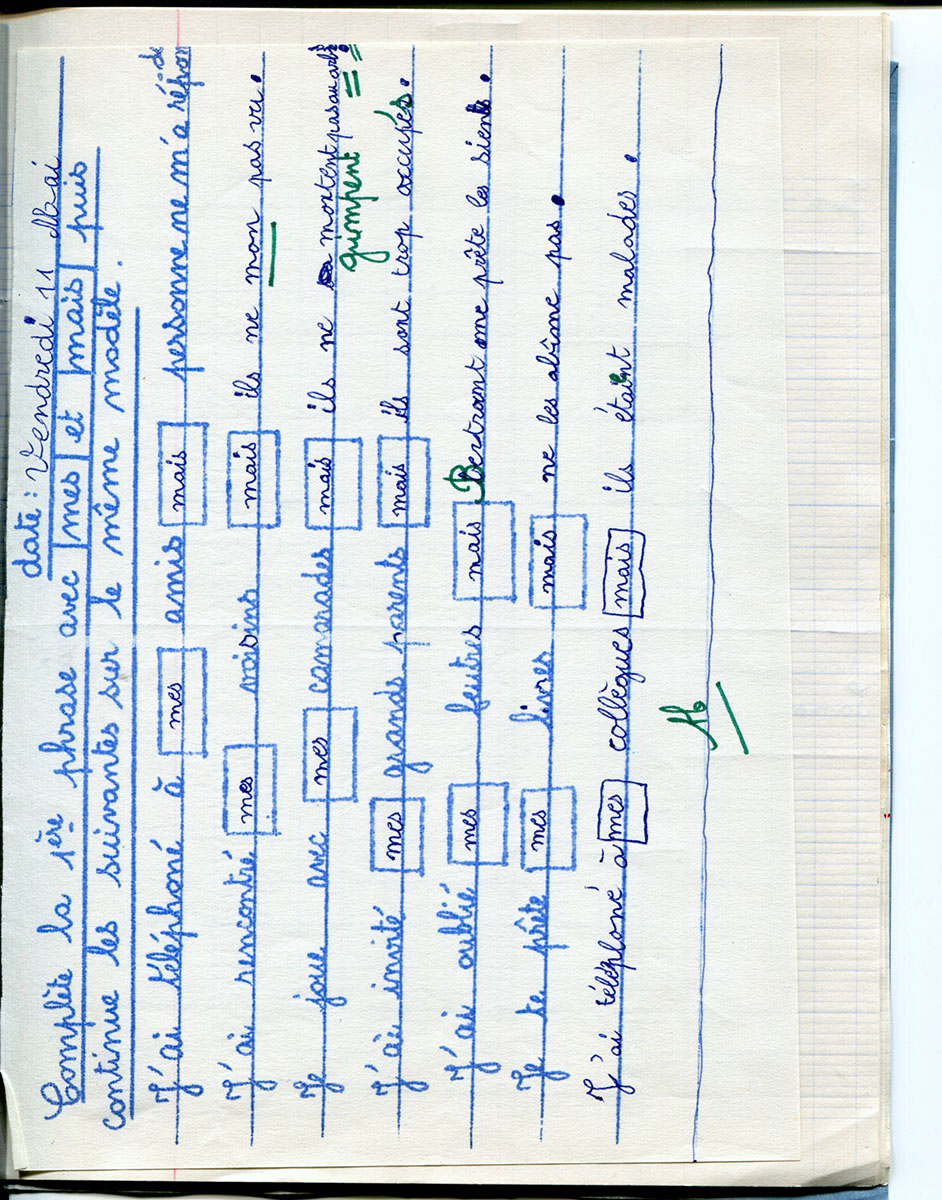 date: Vendredi 11 Mai
Complète la 1ère phrase avec mes et mais puis
continue les suivantes sur le même modèle.
J'ai téléphoné à mes amis mais personne ne m'a répon-
du
J'ai rencontré mes voisins mais ils ne mon pas vu.
Je joue avec mes camarades mais ils ne montent pas au arb
guimpent
J'ai invité mes grands-parents mais ils sont trop occupés.
J'ai oublié mes feutres mais Bertrand me prête les siens.
Je te prête mes livres mais ne les abîme pas.
J'ai téléploné à mes collègues mais ils étaient malades.